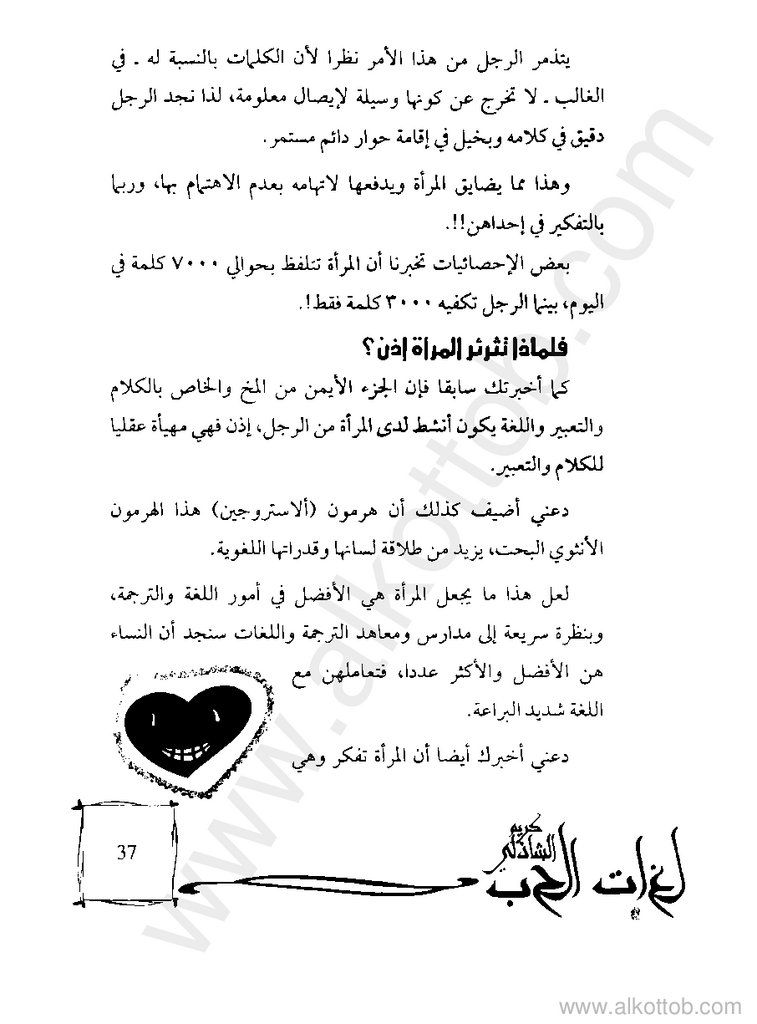 يتذمر الرجل من هذا الأمر نظرا لأن الكلمات بالنسبة له ـ في
الغالب ـ لا تخرج عن كونها وسيلة لإيصال معلومة، لذا نجد الرجل
دقيق في كلامه وبخيل في إقامة حوار دائم مستمر.
وهذا مما يضايق المرأة ويدفعها لاتهامه بعدم الاهتمام بها، وربما
بالتفكير في إحداهن!!.
بعض الإحصائيات تخبرنا أن المرأة تتلفظ بحوالي ٧٠٠٠ كلمة في
اليوم، بينما الرجل تكفيه ٣٠٠٠ كلمة فقط!.
فلماذا تثرثر المرأة إذن؟
كما أخبرتك سابقا فإن الجزء الأيمن من المخ والخاص بالكلام
والتعبير واللغة يكون أنشط لدى المرأة من الرجل، إذن فهي مهيأة عقليا
للكلام والتعبير.
دعني أضيف كذلك أن هرمون (ألاستروجين) هذا الهرمون
الأنثوي البحت، يزيد من طلاقة لسانها وقدراتها اللغوية.
لعل هذا ما يجعل المرأة هي الأفضل في أمور اللغة والترجمة،
وبنظرة سريعة إلى مدارس ومعاهد الترجمة واللغات سنجد أن النساء
هن الأفضل والأكثر عددا، فتعاملهن مع
اللغة شديد البراعة.
دعني أخبرك أيضا أن المرأة تفكر وهي
كريم
الشاذلي
لغات الحب
37
www.alkottob.com
www.alkottob.com